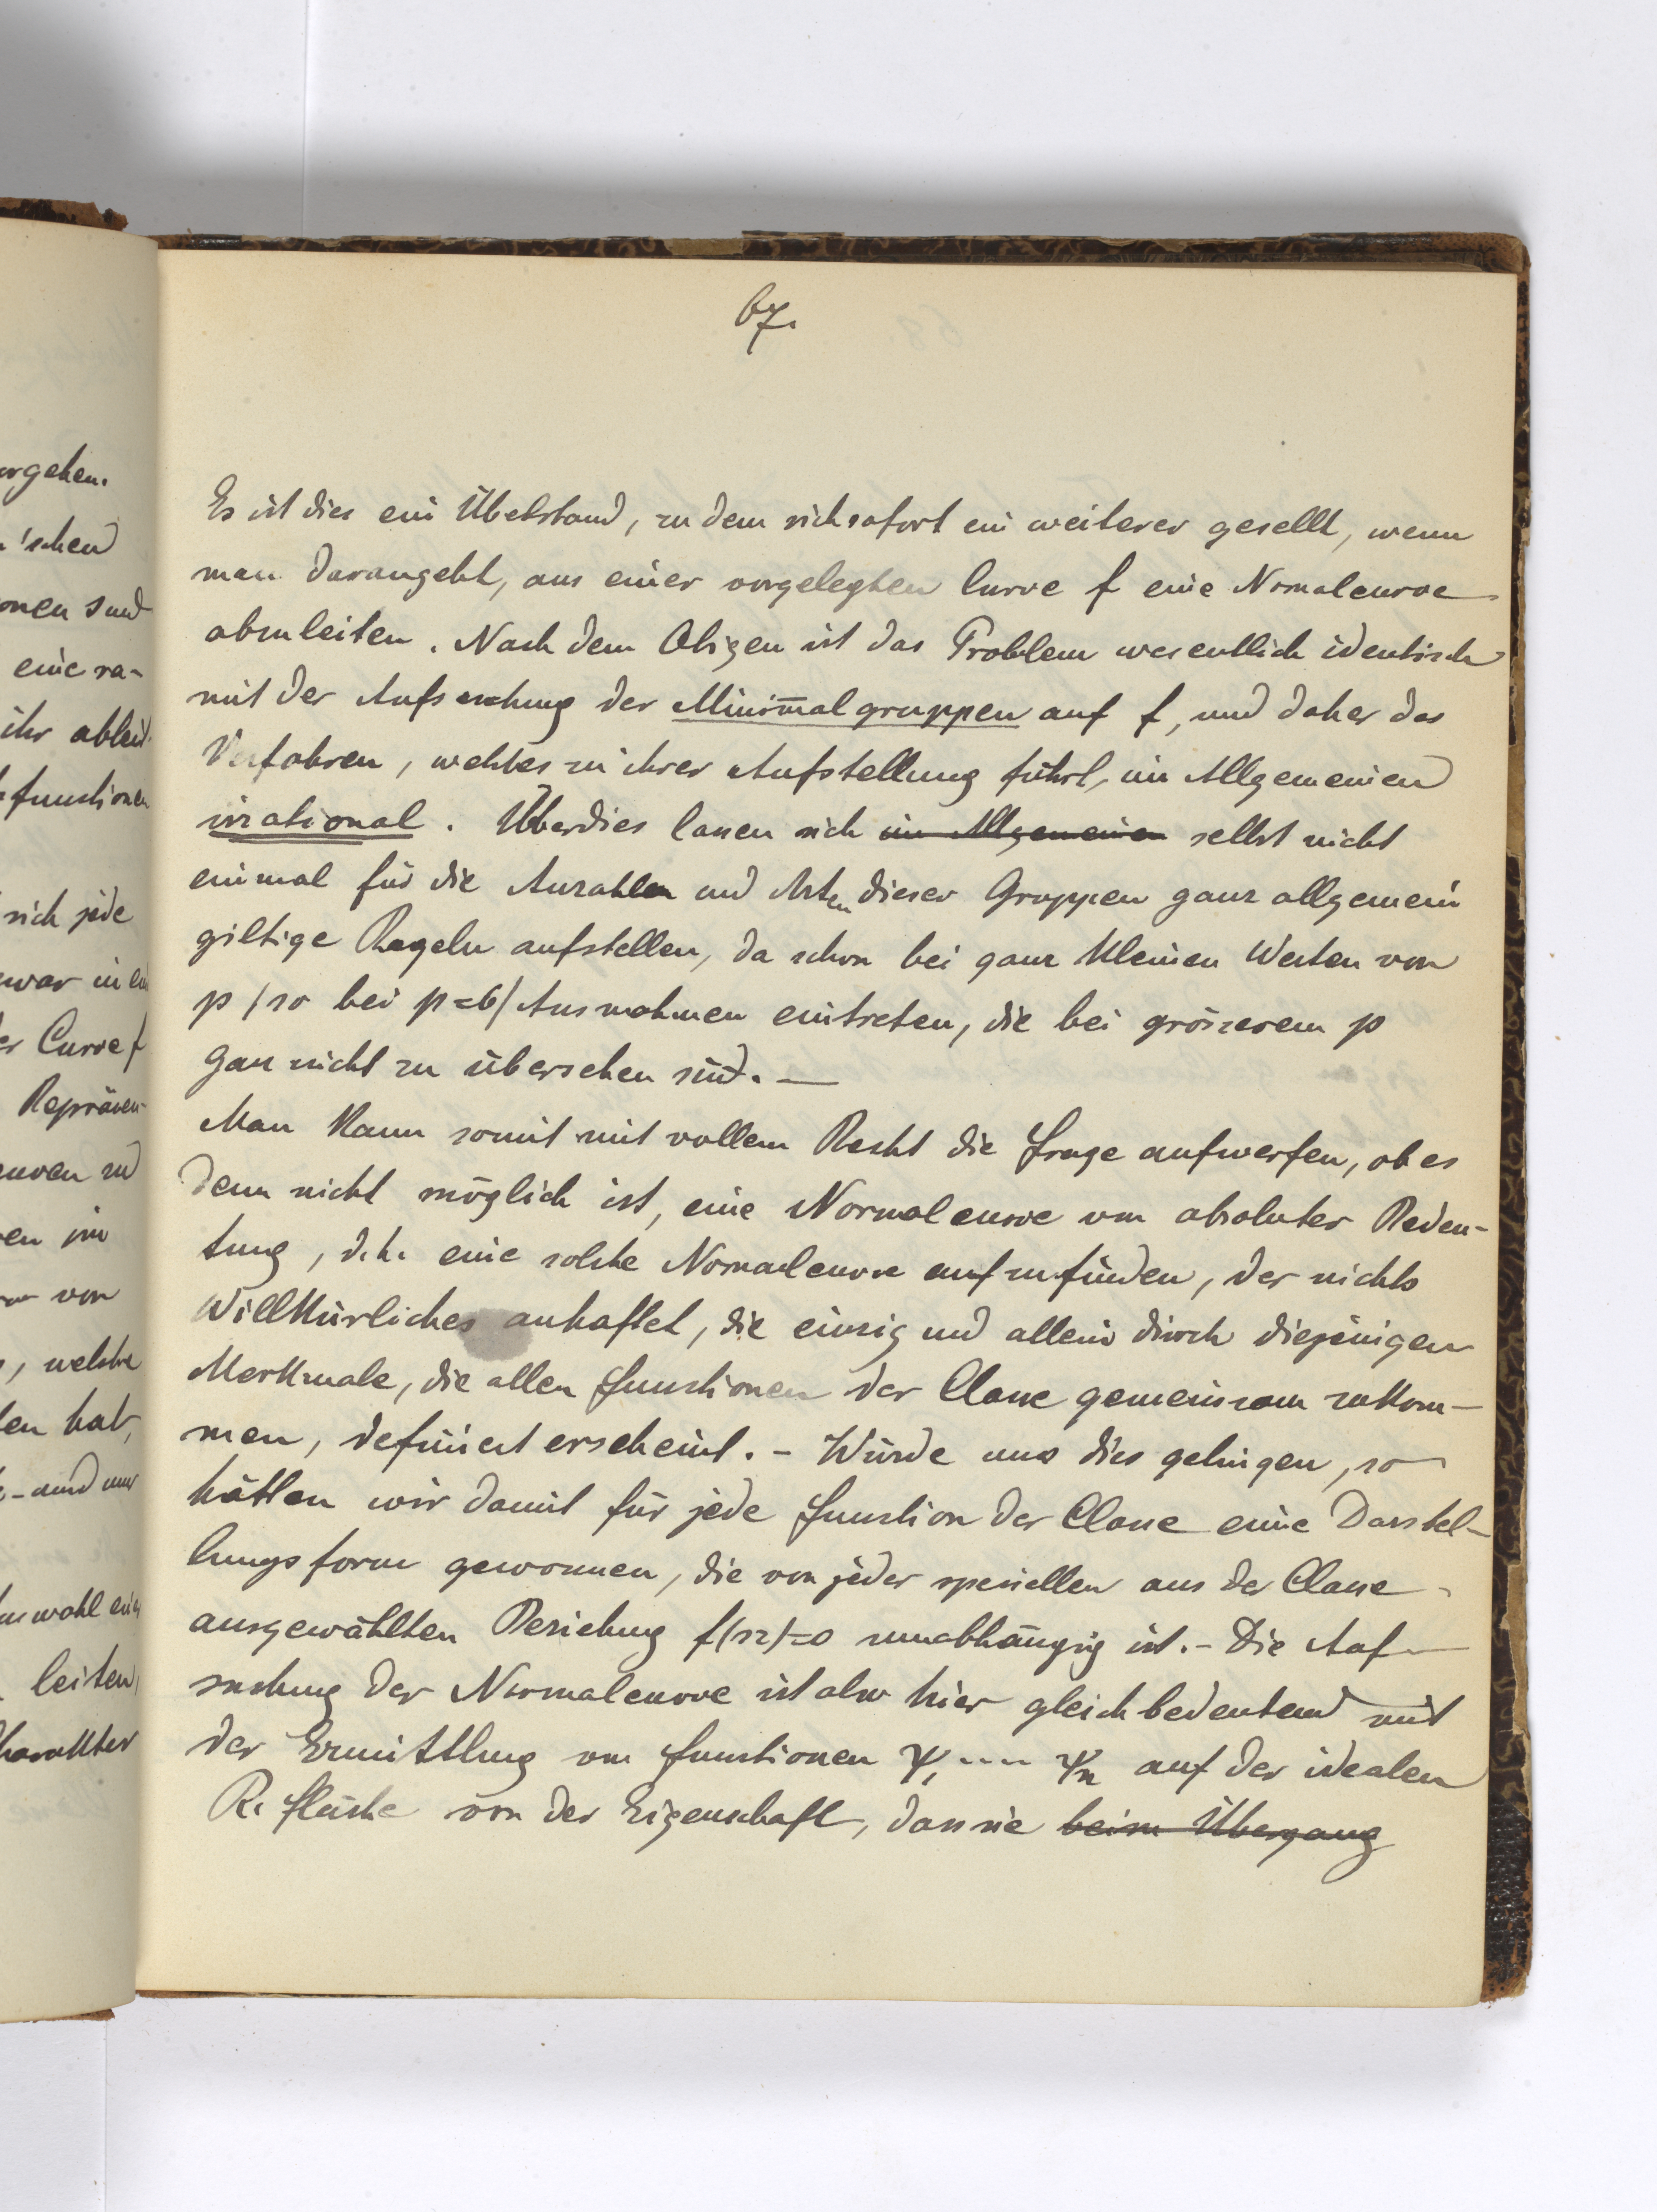 67.
Es ist dies ein Übelstand, zu dem sich sofort ein weiterer gesellt, wenn
man darangeht, aus einer vorgelegten Curve f eine Normalcurve
abzuleiten. Nach dem Obigen ist das Problem wesentlich identisch
mit der Aufsuchung der Minimalgruppen auf f, und daher das
Verfahren, welches zu ihrer Aufstellung führt, im Allgemeinen
irrational. Überdies lassen sich im Allgemeinen selbst nicht
einmal für die Anzahlen und Arten dieser Gruppen ganz allgemein
giltige Regeln aufstellen, da schon bei ganz kleinen Werten von
p /so bei p=6/ Ausnahmen eintreten, die bei grösserem p
gar nicht zu übersehen sind. —
Man kann somit mit vollem Recht die Frage aufwerfen, ob es
denn nicht möglich ist, eine Normalcurve von absoluter Bedeu-
tung, d.h. eine solche Normalcurve aufzufinden, der nichts
Willkürliches anhaftet, die einzig und allein durch diejenigen
Merkmale, die allen Functionen der Classe gemeinsam zukom-
men, definiert erscheint. - Würde uns dies gelingen, so
hätten wir damit für jede Function der Classe eine Darstel-
lungsform gewonnen, die von jeder speziellen aus der Classe
ausgewählten Beziehung f(sz)=0 unabhängig ist. - Die Auf-
suchung der Normalcurve ist also hier gleichbedeutend mit
der Ermittlung von Functionen ψ₁ ---- ψₙ auf der idealen
R. fläche von der Eigenschaft, dass sie beim Übergang
orgehen.
'schen
onen sind
eine ra-
ihr ableit
functionen
sich jede
war in
Curve f
Repräsen-
en im
von
, welche
hat,
- und nur
leiten